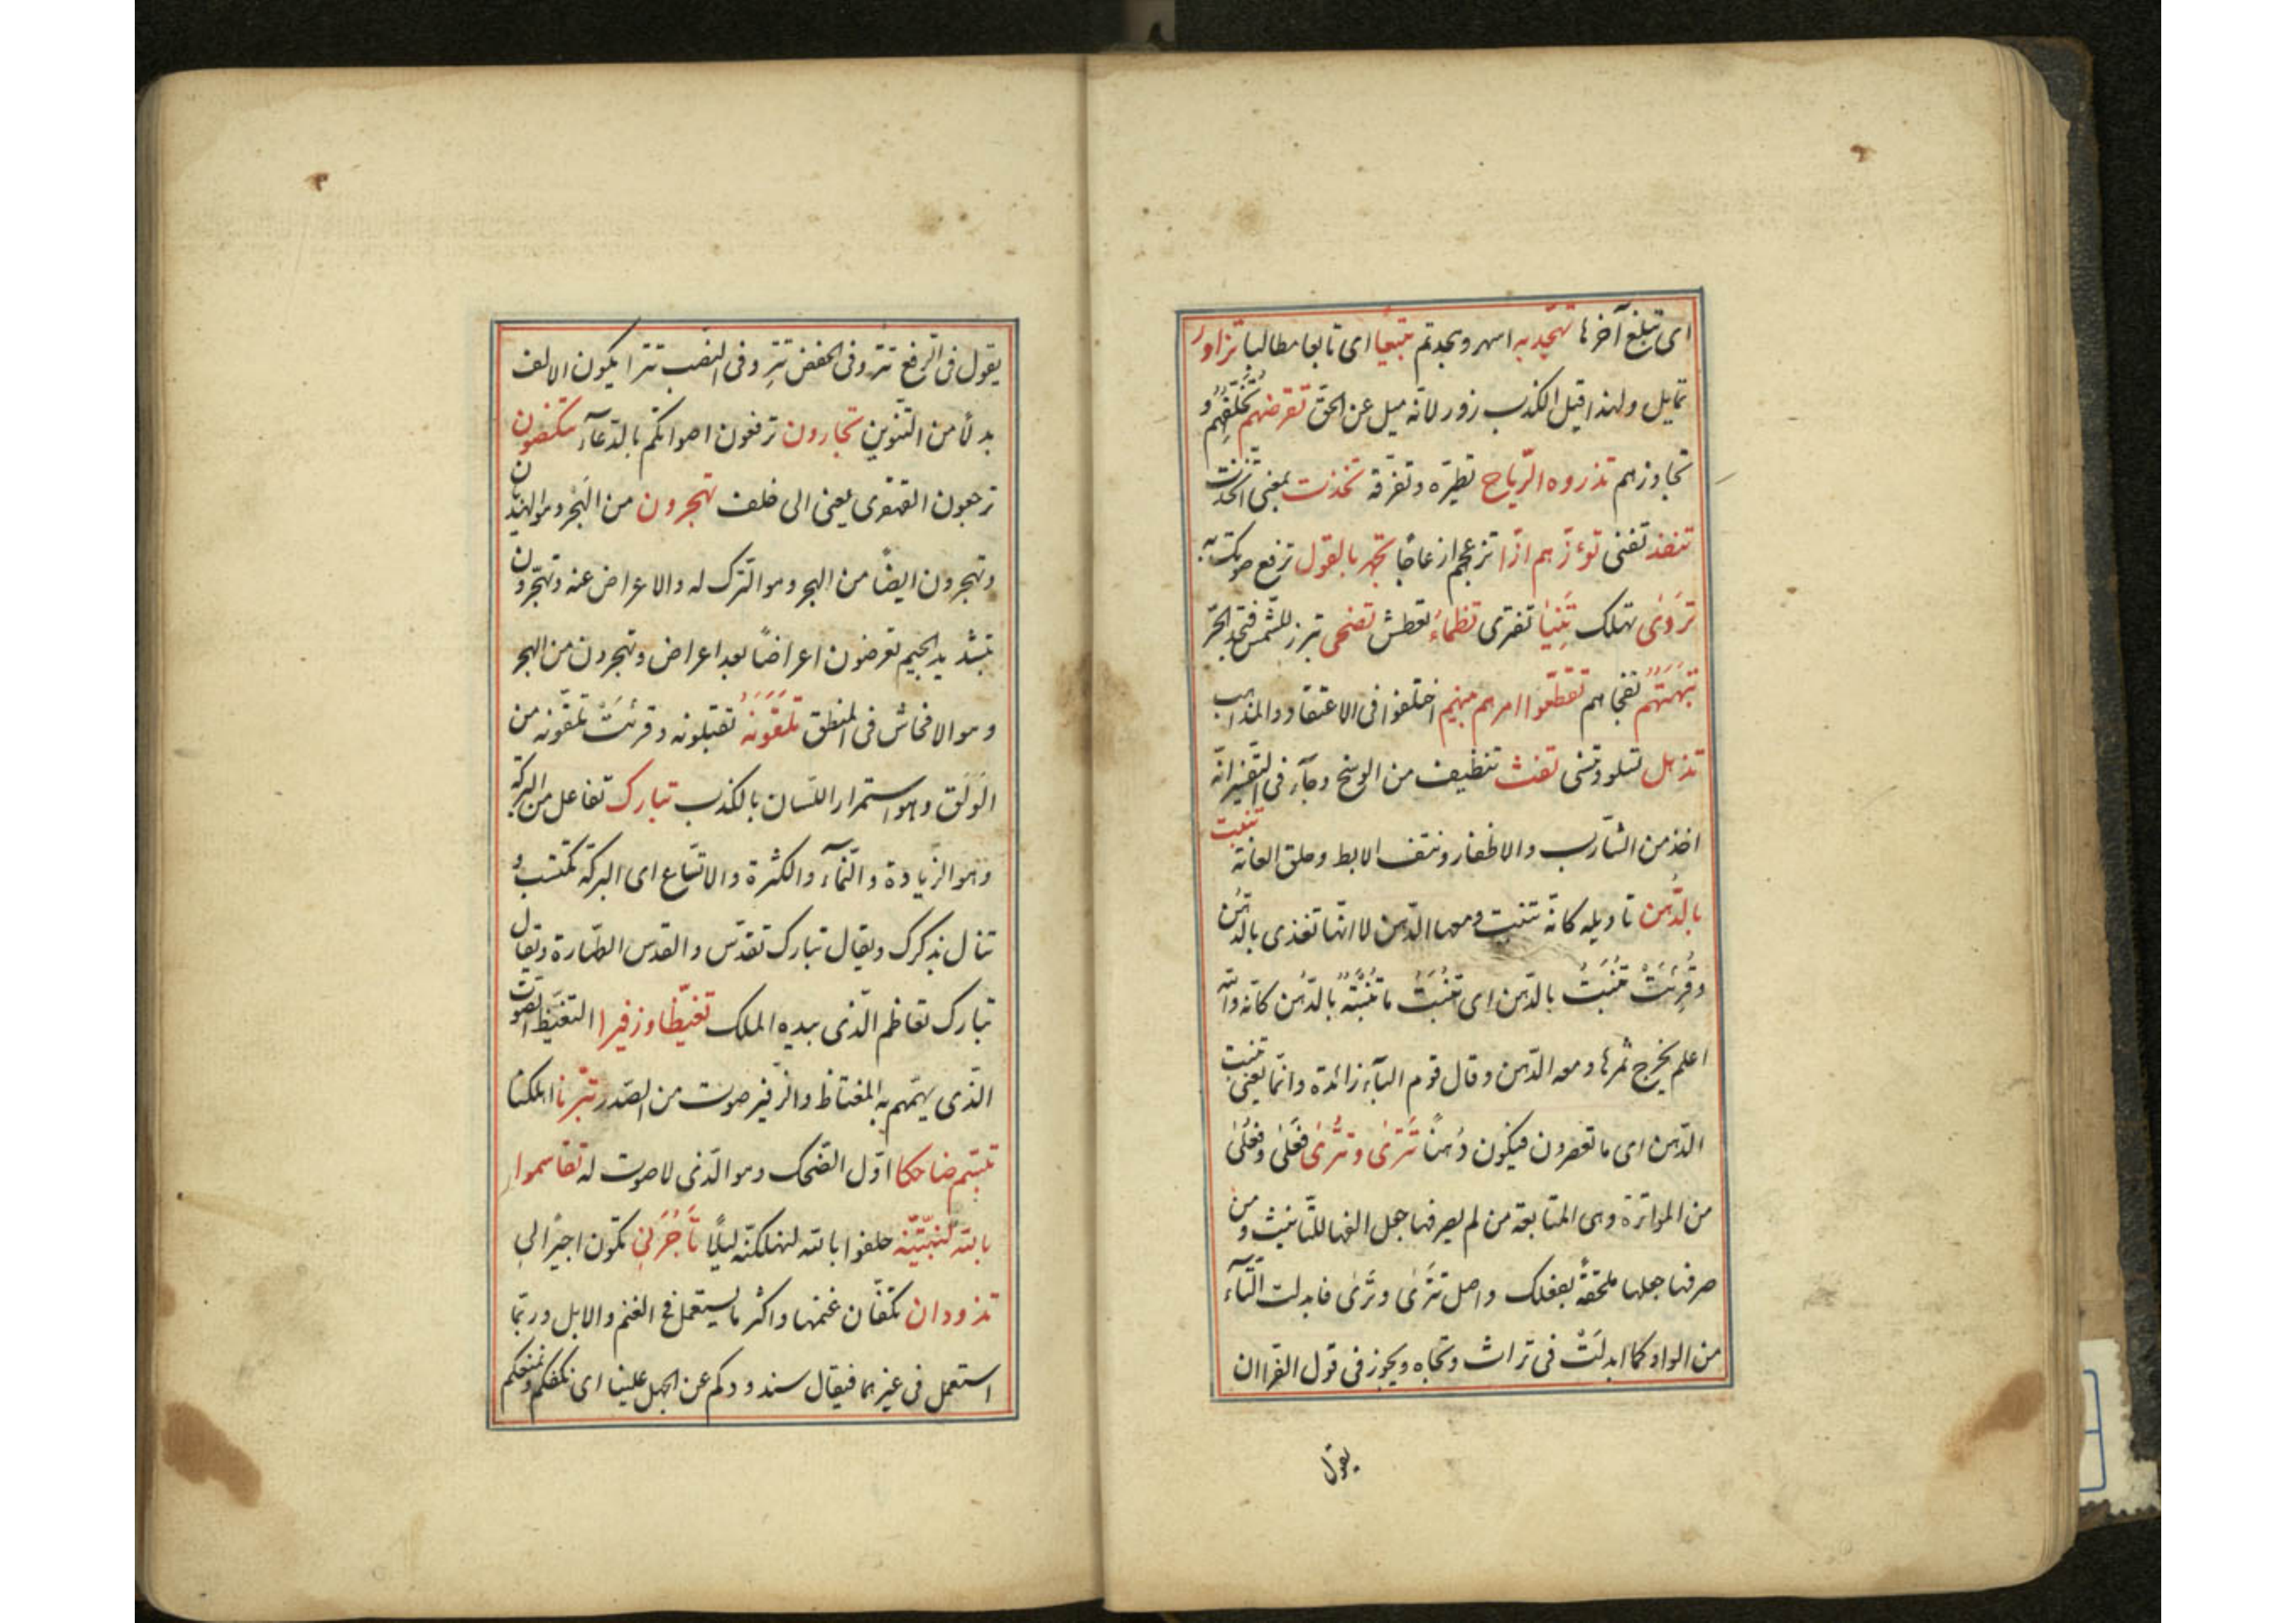 اى تبلغ آخرها تهجّد به اسهر وهجدتم تبيعًا اى تابعا مطالبا تزاور
تمايل ولهذا قيل الكذب زور لانّه ميل عن الحقّ تقرضهم تخلّفهم و
تجاوزهم تذروه الرّياح تطيّره وتفرّقه تخذت بمعنى اتخذت
تنفد تفنى تؤزّهم ازّا تزعجهم ازعاجًا تجهر بالقول ترفع صوتك به
تردى تهلك تنيا تفترى تظماء تعطش تضحى تبرز للشّمس فتجد الحرّ
تبهتهم تفجاهم تقطّعوا امرهم بينهم اختلفوا فى الاعتقاد والمذاهب
تذهل تسلو وتنسى تفث تنظيف من الوسخ وجآء فى التفسير انّه
اخذ من الشّارب والاظفار ونتف الابط وحلق العانة تنبت
بالدّهن تاويله كانّه تنبت ومعها الدّهن لا انّها تغذى بالدّهن
وقُرِئَتْ تُنْبَتُ بالدّهن اى تُنْبَتُ ما تنبته بالدّهن كانّه والله
اعلم يخرج ثمرها ومعه الدّهن وقال قوم البآء زائدة وانّما يعنى تنبت
الدّهن اى ما تعصرون فيكون دُهنًا تَترى وتترًى فَعْلى وفعلًى
من المواترة وهى المتابعة من لم يصرفها جعل الفها للتّانيث ومن
صرفها جعلها ملحقةً بفعلل واصل تترى وترى فابدلت التّآء
من الواو كما ابدلَتْ فى تراث وتجاه ويجوز فى قول الفرّا ان
يقول
يقول فى الرّفع تتر وفى الخفض تترٍ وفى النصب تترا يكون الالف
بدلًا من التّنوين تجارون ترفعون اصواتكم بالدّعآء تنكصون
ترجعون القهقرى يعنى الى خلف تهجرون من الهُجر وهو الهذيان
وتهجرون ايضًا من الهجر وهو التّرك له والاعراض عنه وتهجّرون
بتشديد الجيم تعرضون اعراضًا بعد اعراض وتهجرون من الهجر
وهو الافحاش فى المنطق تلقّونه تقبلونه وقرئت تلقونه من
الوَلَق وهو استمرار اللّسان بالكذب تبارك تفاعل من البركة
وهو الزّيادة والنّمآء والكثرة والاتّساع اى البركة تكتسب و
تنال بذكرك ويقال تبارك تقدّس والقدس الطّهارة ويقال
تبارك تعاظم الّذى بيده الملك تغيّظا وزفيرا التغيّظ الصّوت
الّذى يهمهم به المغتاظ والزّفير صوت من الصّدر تبّرنا اهلكنا
تبسّم ضاحكا اوّل الضّحك وهو الّذى لا صوت له تقاسموا
بالله لنبيّتنّه حلفوا بالله لنهلكنّه ليلًا تَأجُرَنى تكون اجيرًا لى
تذودان تكفّان غنمهما واكثر ما يستعمل فى الغنم والابل وربّما
استعمل فى غيرهما فيقال سنذودكم عن الجهل علينا اى نكفّكم ونمنعكم